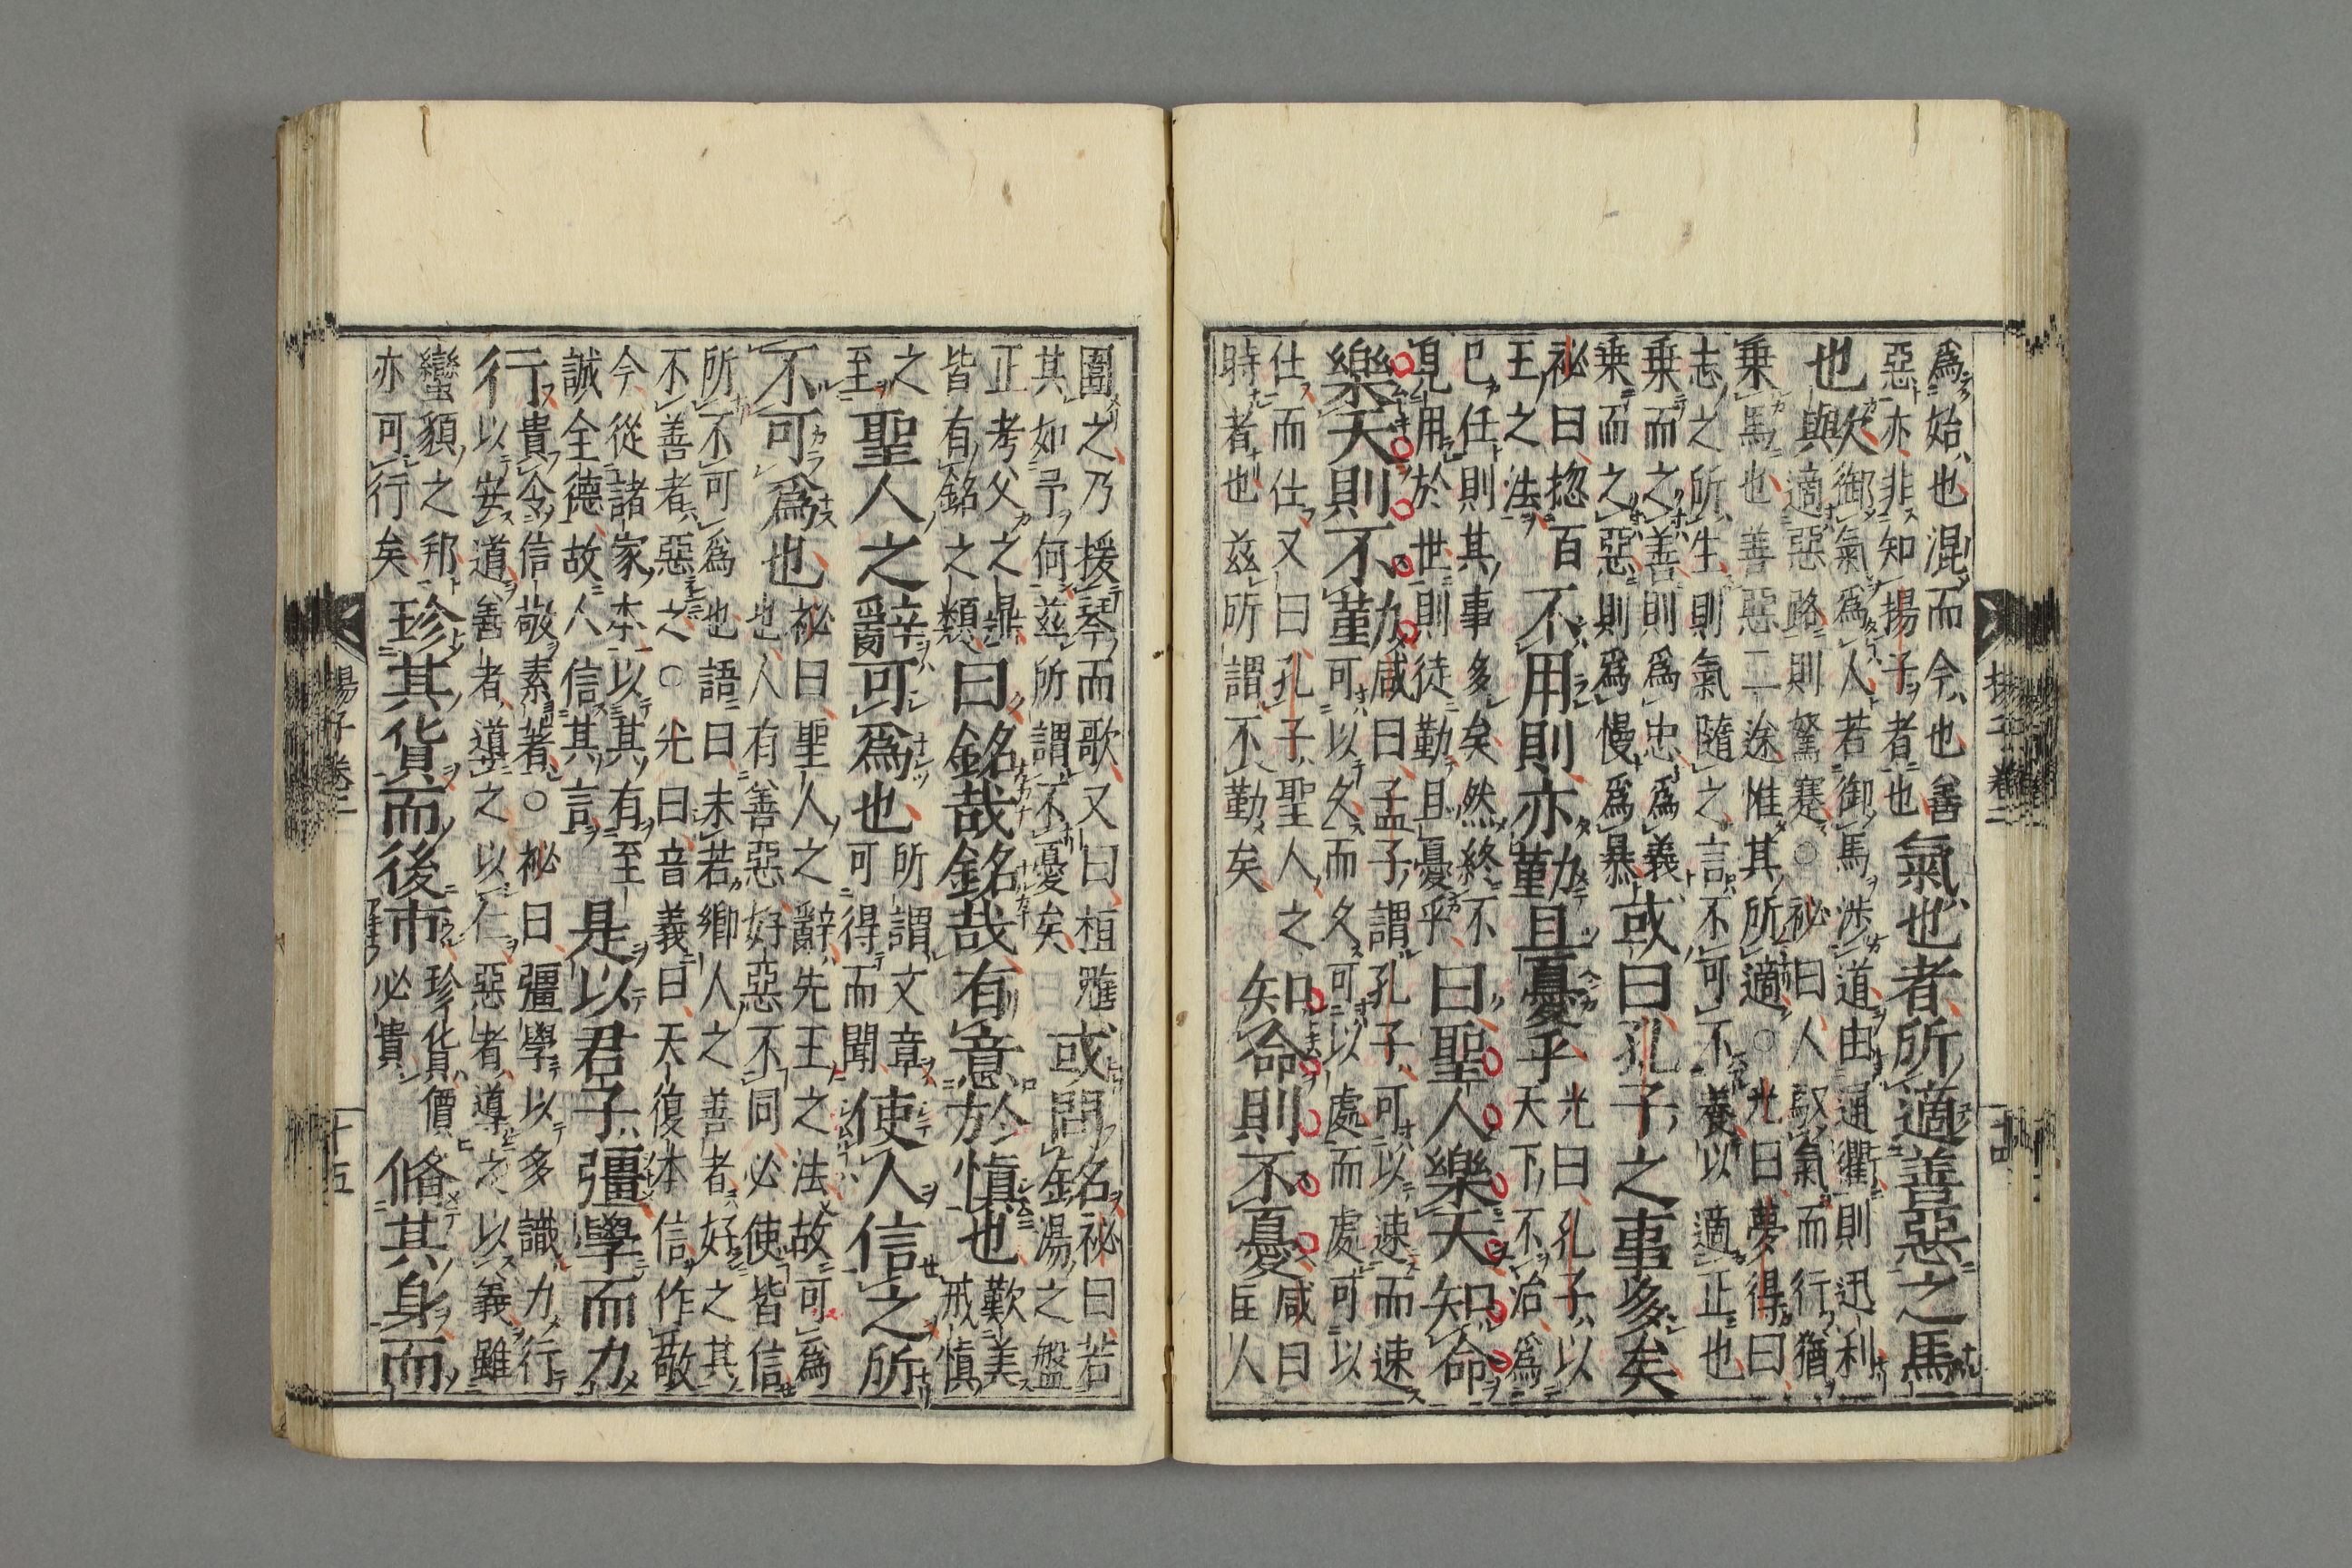 爲始也混而今也善
惡亦非知揚子者也
氣也者所適善惡之馬
也歟
御氣爲人若御馬涉道由通衢則迅利
適惡路則駑蹇○祕曰人馭氣而行猶
乗馬也善惡二途惟其所適○光曰夢得曰
志之所生則氣隨之言不可不養以適正也
乗而之善則爲忠爲義
乗而之惡則爲慢爲暴
或曰孔子之事多矣
祕曰揔百
王之法
不用則亦勤且憂乎
光曰孔子以
天下不治爲
己任則其事多矣然終不
見用於世則徒勤且憂乎
曰聖人樂天知命
樂天則不勤
咸曰孟子謂孔子可以速而速
可以久而久可以處而處可以
仕而仕又曰孔子聖人之
時者也兹所謂不勤矣
知命則不憂
咸曰
匡人
圍之乃援琴而歌又曰桓魋
其如予何兹所謂不憂矣
或問銘
祕曰若
湯之盤
正考父之鼎
皆有銘之類
曰銘哉銘哉有意於慎也
歎美
戒慎
之
至
聖人之辭可爲也
所謂文章
可得而聞
使人信之所
不可爲也
祕曰聖人之辭先王之法故可爲
也人有善惡好惡不同必使皆信
所不可爲也語曰未若鄉人之善者好之其
不善者惡之○光曰音義曰天復本信作敬
今從諸家本以其有至
誠全德故人信其言
是以君子彊學而力
行
貴令信敬素著○祕曰彊學以多識力行
以安道善者道之以仁惡者導之以義雖
蠻貊之邦
亦可行矣
珍其貨而後市
珍貨價
必貴
脩其身而
揚子卷二
十五